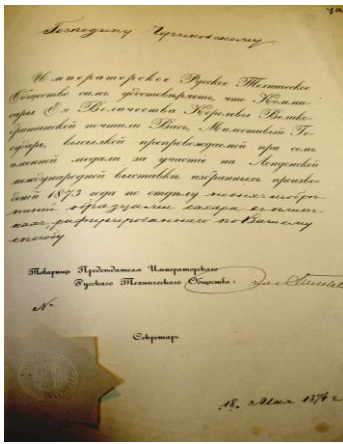 Господину Чугиковскому
Императорское Русское Техническое
Общество симъ удостовѣряетъ, что Комми-
сары Ея Величества Королевы Велико-
британской почтили Васъ, Милостивый Го-
сударь, высылкой препровождаемой при семъ
именной медали за участіе на Лондонской
международной выставкѣ избранныхъ произве-
деній 1873 года по отдѣлу
образцами сахара
рафинированнаго по Вашему
способу
Товарищъ Предсѣдателя Императорскаго
Русскаго Техническаго Общества:
№
Секретарь
18. Мая 1874 г